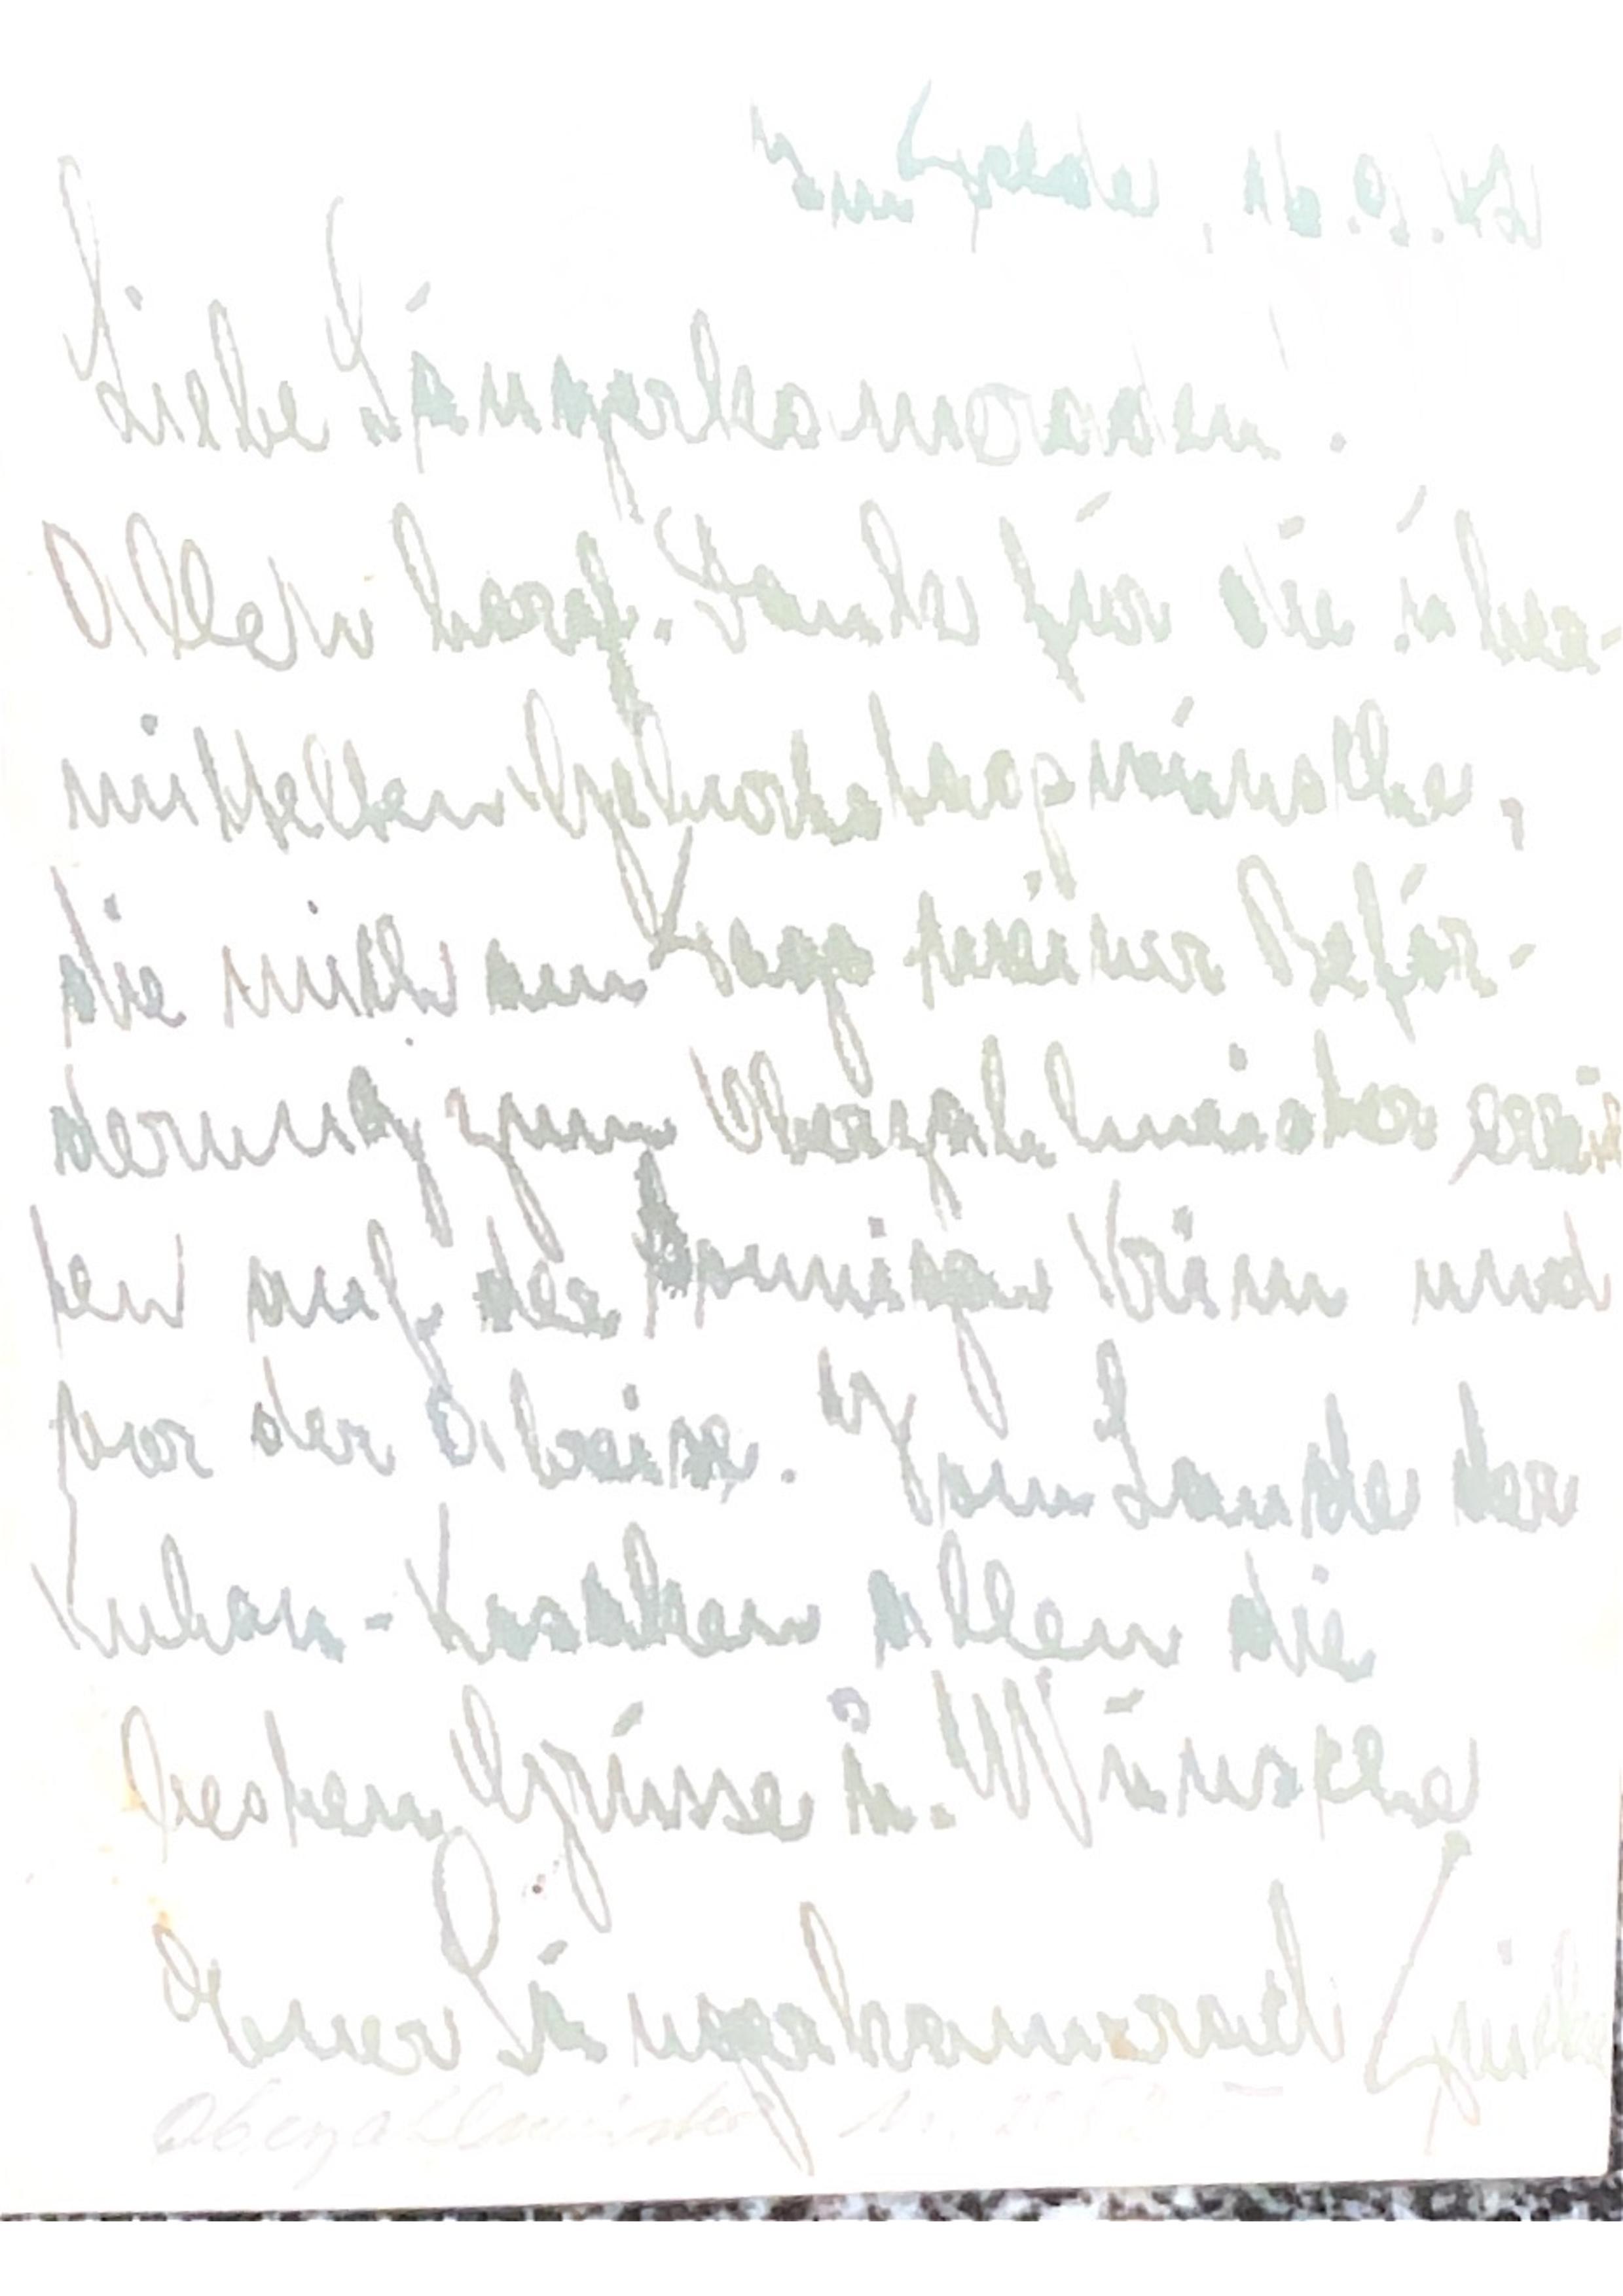 Im Felde, d.
Liebe Sängerkameraden!
Allen herzl. Dank für die über-
mittelten Geburtstagswünsche,
die mich am Tage meiner Beför-
derung zum Oberzahlmeister erreich
ten auf der sonnigen Krim und
vor der Abreise. Vom Lande der
Kuban-Kosaken allen die
besten Grüsse u. Wünsche
Euer Sängerkamerad
Oberzahlmeister